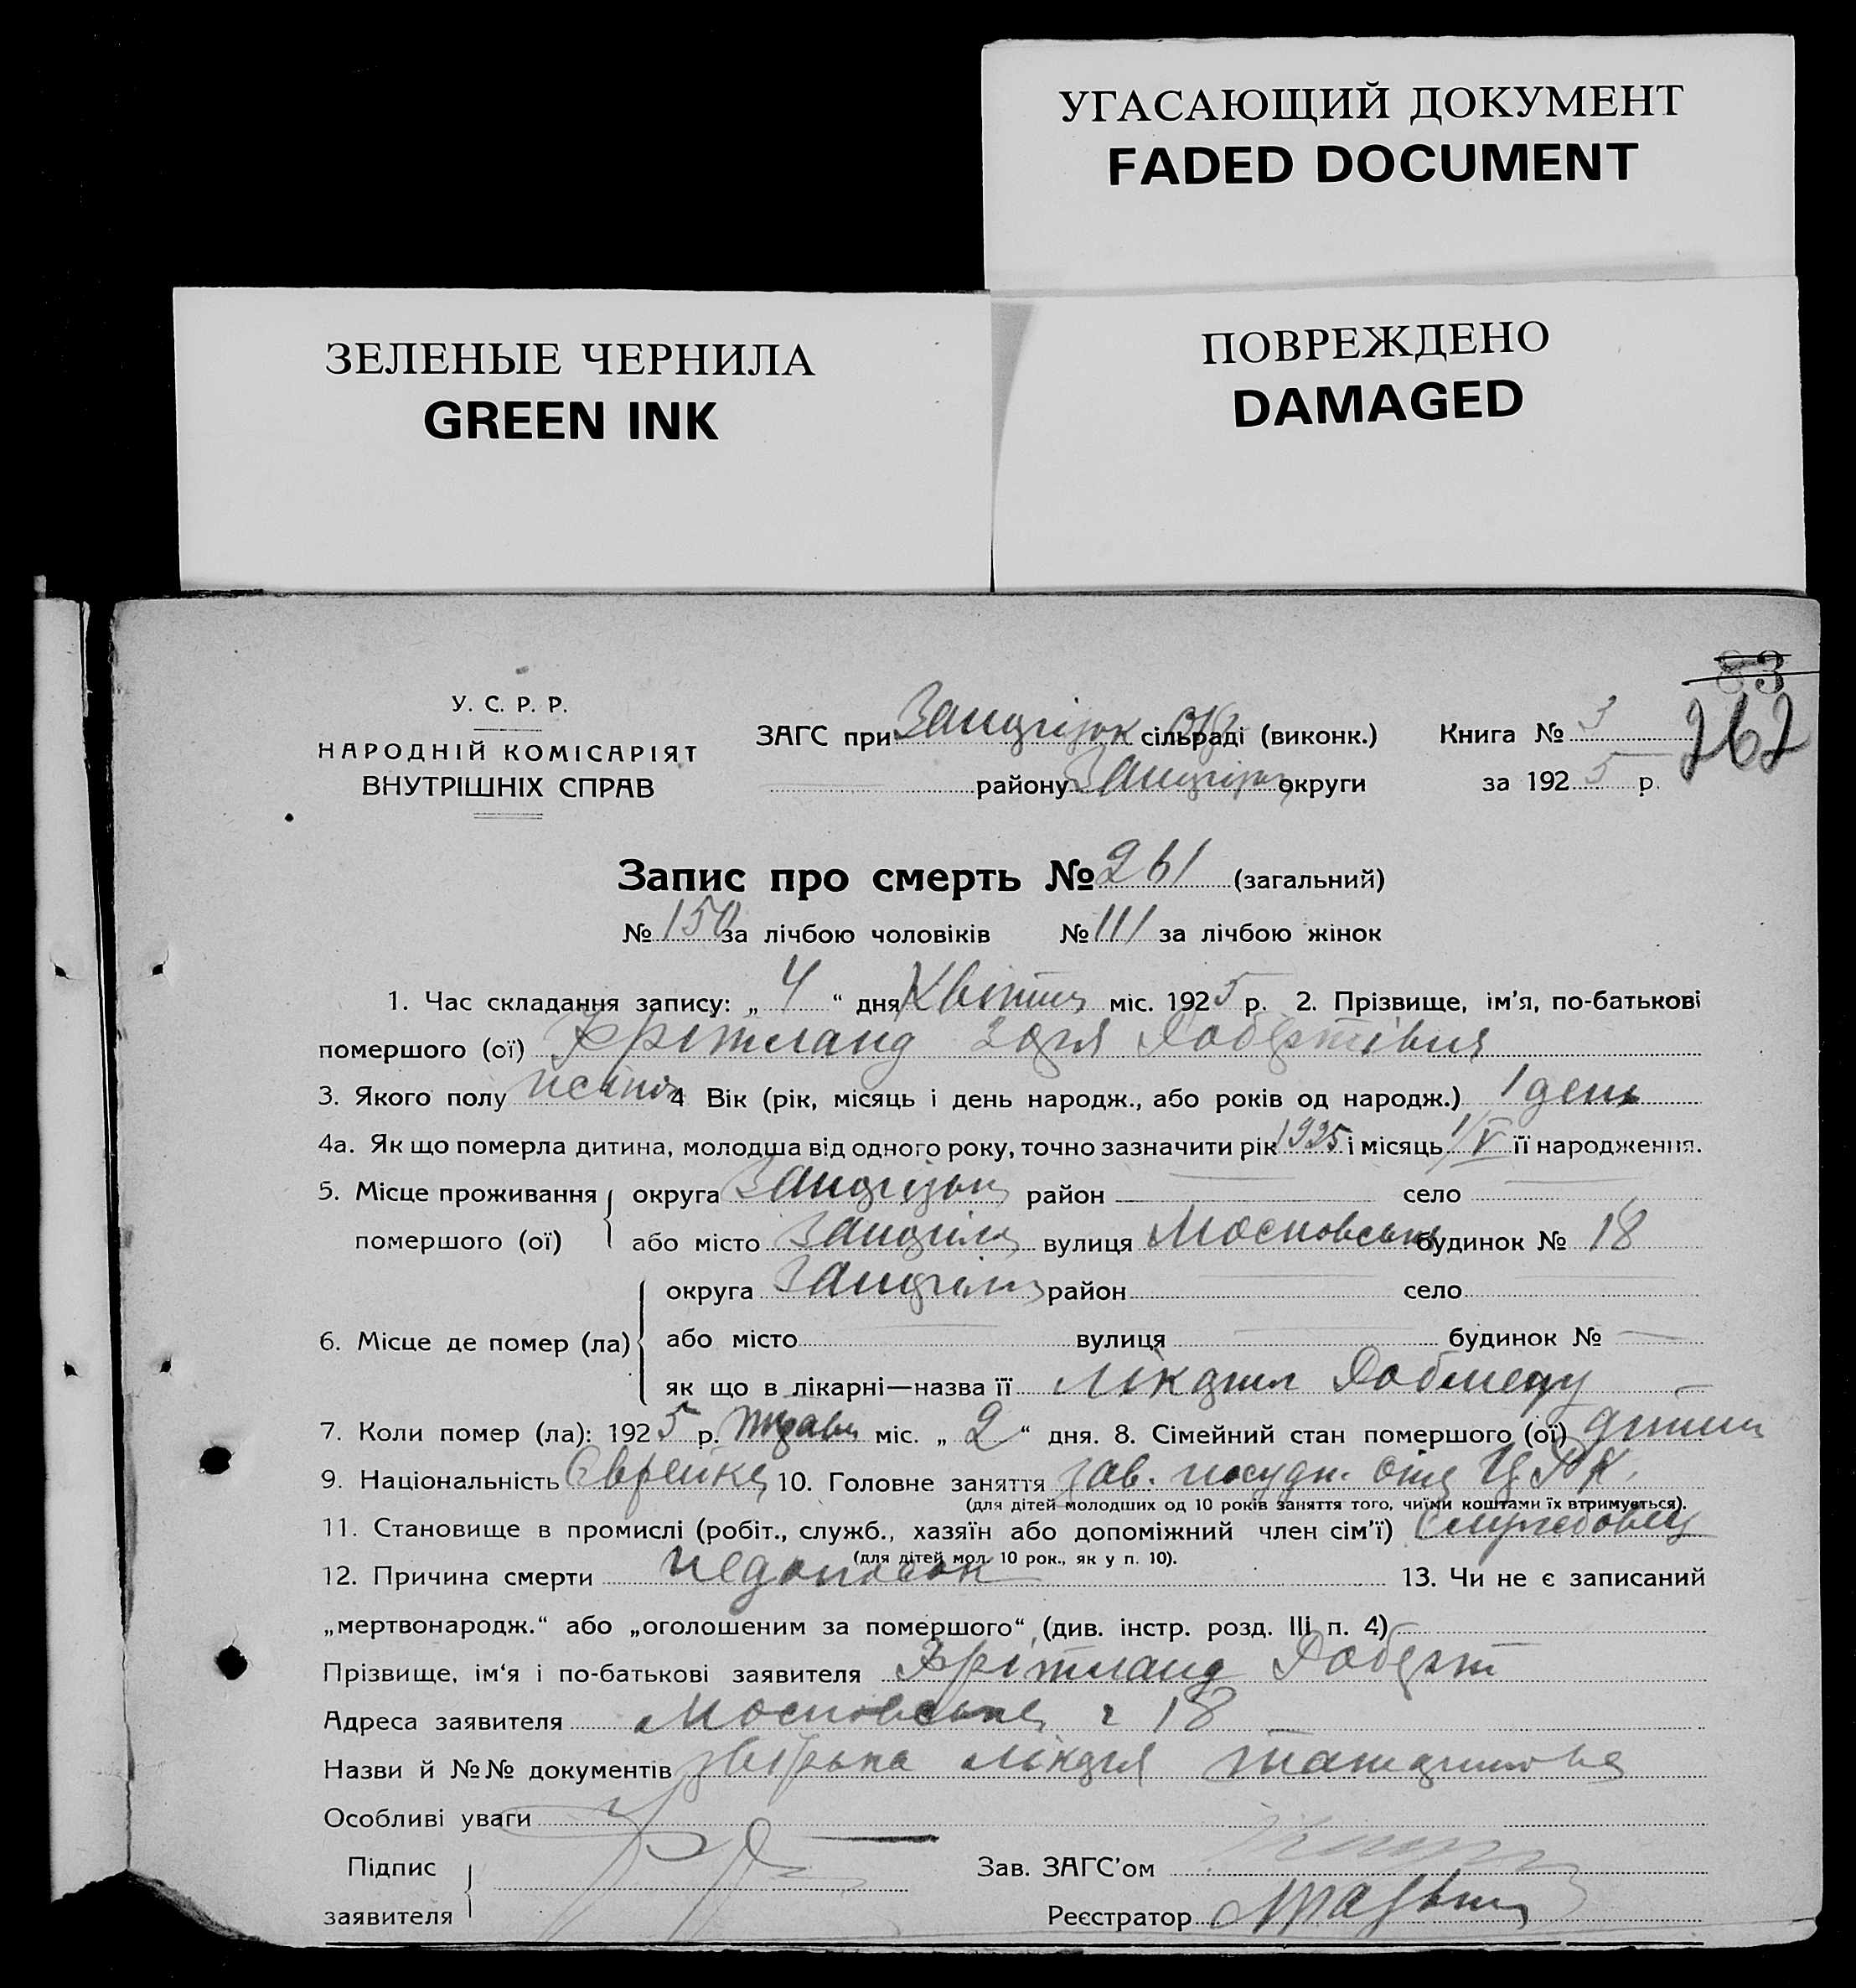 УГАСАЮЩИЙ ДОКУМЕНТ
FADED DOCUMENT
ЗЕЛЕНЫЕ ЧЕРНИЛА
GREEN INK
ПОВРЕЖДЕНО
DAMAGED
83
262
У. С. Р. Р.
НАРОДНІЙ КОМІСАРІЯТ
ВНУТРІШНІХ СПРАВ
ЗАГС при сільраді (виконк.) Книга № 3
району округи за 1925 р.
Запис про смерть № 261 (загальний)
№ 150 за лічбою чоловіків № 111 за лічбою жінок
1. Час складання запису: „ 4 “ дня Квітня міс. 1925 р. 2. Прізвище, ім'я, по-батькові
помершого (ої) Робертівна
3. Якого полу 4 Вік (рік, місяць і день народж., або років од народж.) 1 день
4а. Як що померла дитина, молодша від одного року, точно зазначити рік 1925 і місяць 1/V її народження.
5. Місце проживання округа район — село —
помершого (ої) або місто вулиця Московська будинок № 18
округа район — село —
6. Місце де помер (ла) або місто — вулиця — будинок № —
як що в лікарні—назва її
7. Коли помер (ла): 1925 р. Травня міс. „ 2 “ дня. 8. Сімейний стан помершого (ої) дитина
9. Національність Єврейка 10. Головне заняття зав.
(для дітей молодших од 10 років заняття того, чиїми коштами їх втримується).
11. Становище в промислі (робіт., служб., хазяїн або допоміжний член сім'ї) Службовец
(для дітей мол. 10 рок., як у п. 10).
12. Причина смерти недоносок 13. Чи не є записаний
„мертвонародж.“ або „оголошеним за помершого“ (див. інстр. розд. III п. 4) —
Прізвище, ім'я і по-батькові заявителя Роберт
Адреса заявителя Московська ч 18
Назви й №№ документів
Особливі уваги —
Підпис Зав. ЗАГС'ом
заявителя Реєстратор